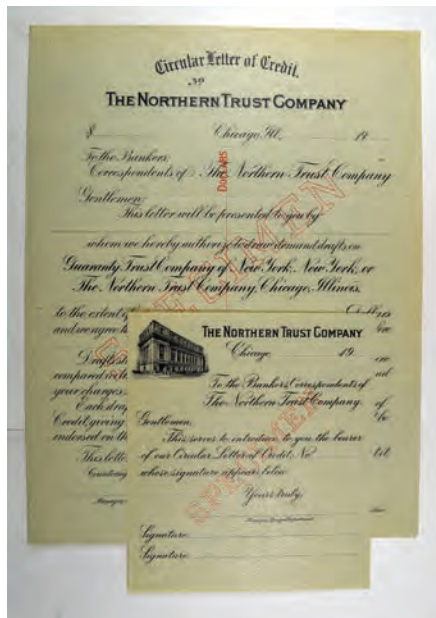 Circular Letter of Credit.
No
THE NORTHERN TRUST COMPANY
$ Chicago, Ill. 19
To the Bankers
Correspondents of The Northern Trust Company
DOLLARS
Gentlemen:
This letter will be presented to you by
whom we hereby authorize to draw demand drafts on
Guaranty Trust Company of New York, New York, or
The Northern Trust Company, Chicago, Illinois.
SPECIMEN
to the extent of
and we agree
Drafts
compared with
your charges
Each
Credit, giving
endorsed on the
This letter
THE NORTHERN TRUST COMPANY
Chicago 19
To the Bankers Correspondents of
The Northern Trust Company.
Gentlemen,
This serves to introduce to you the bearer
of our Circular Letter of Credit No
whose signature appears below.
SPECIMEN
Yours truly,
Signature
Signature